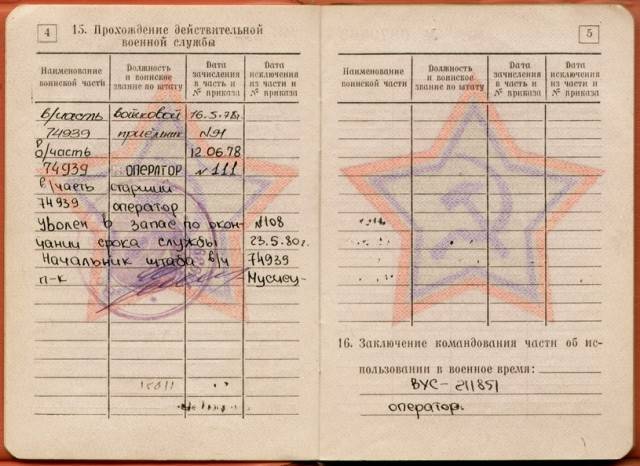 4
15. Прохождение действительной
военной службы
Наименование воинской части
Должность и воинское звание по штату
Дата зачисления в часть и № приказа
Дата исключения из части и № приказа
в/часть войсковой 16.5.78г.
74939 приёмник №91
в/часть 12.06.78
74939 оператор №111
в/часть старший
74939 оператор
Уволен в запас по окон- №108
чании срока службы 23.5.80г.
Начальник штаба в/ч 74939
п-к
5
Наименование воинской части
Должность и воинское звание по штату
Дата зачисления в часть и № приказа
Дата исключения из части и № приказа
16. Заключение командования части об ис-
пользовании в военное время:
ВУС - 211851
оператор.